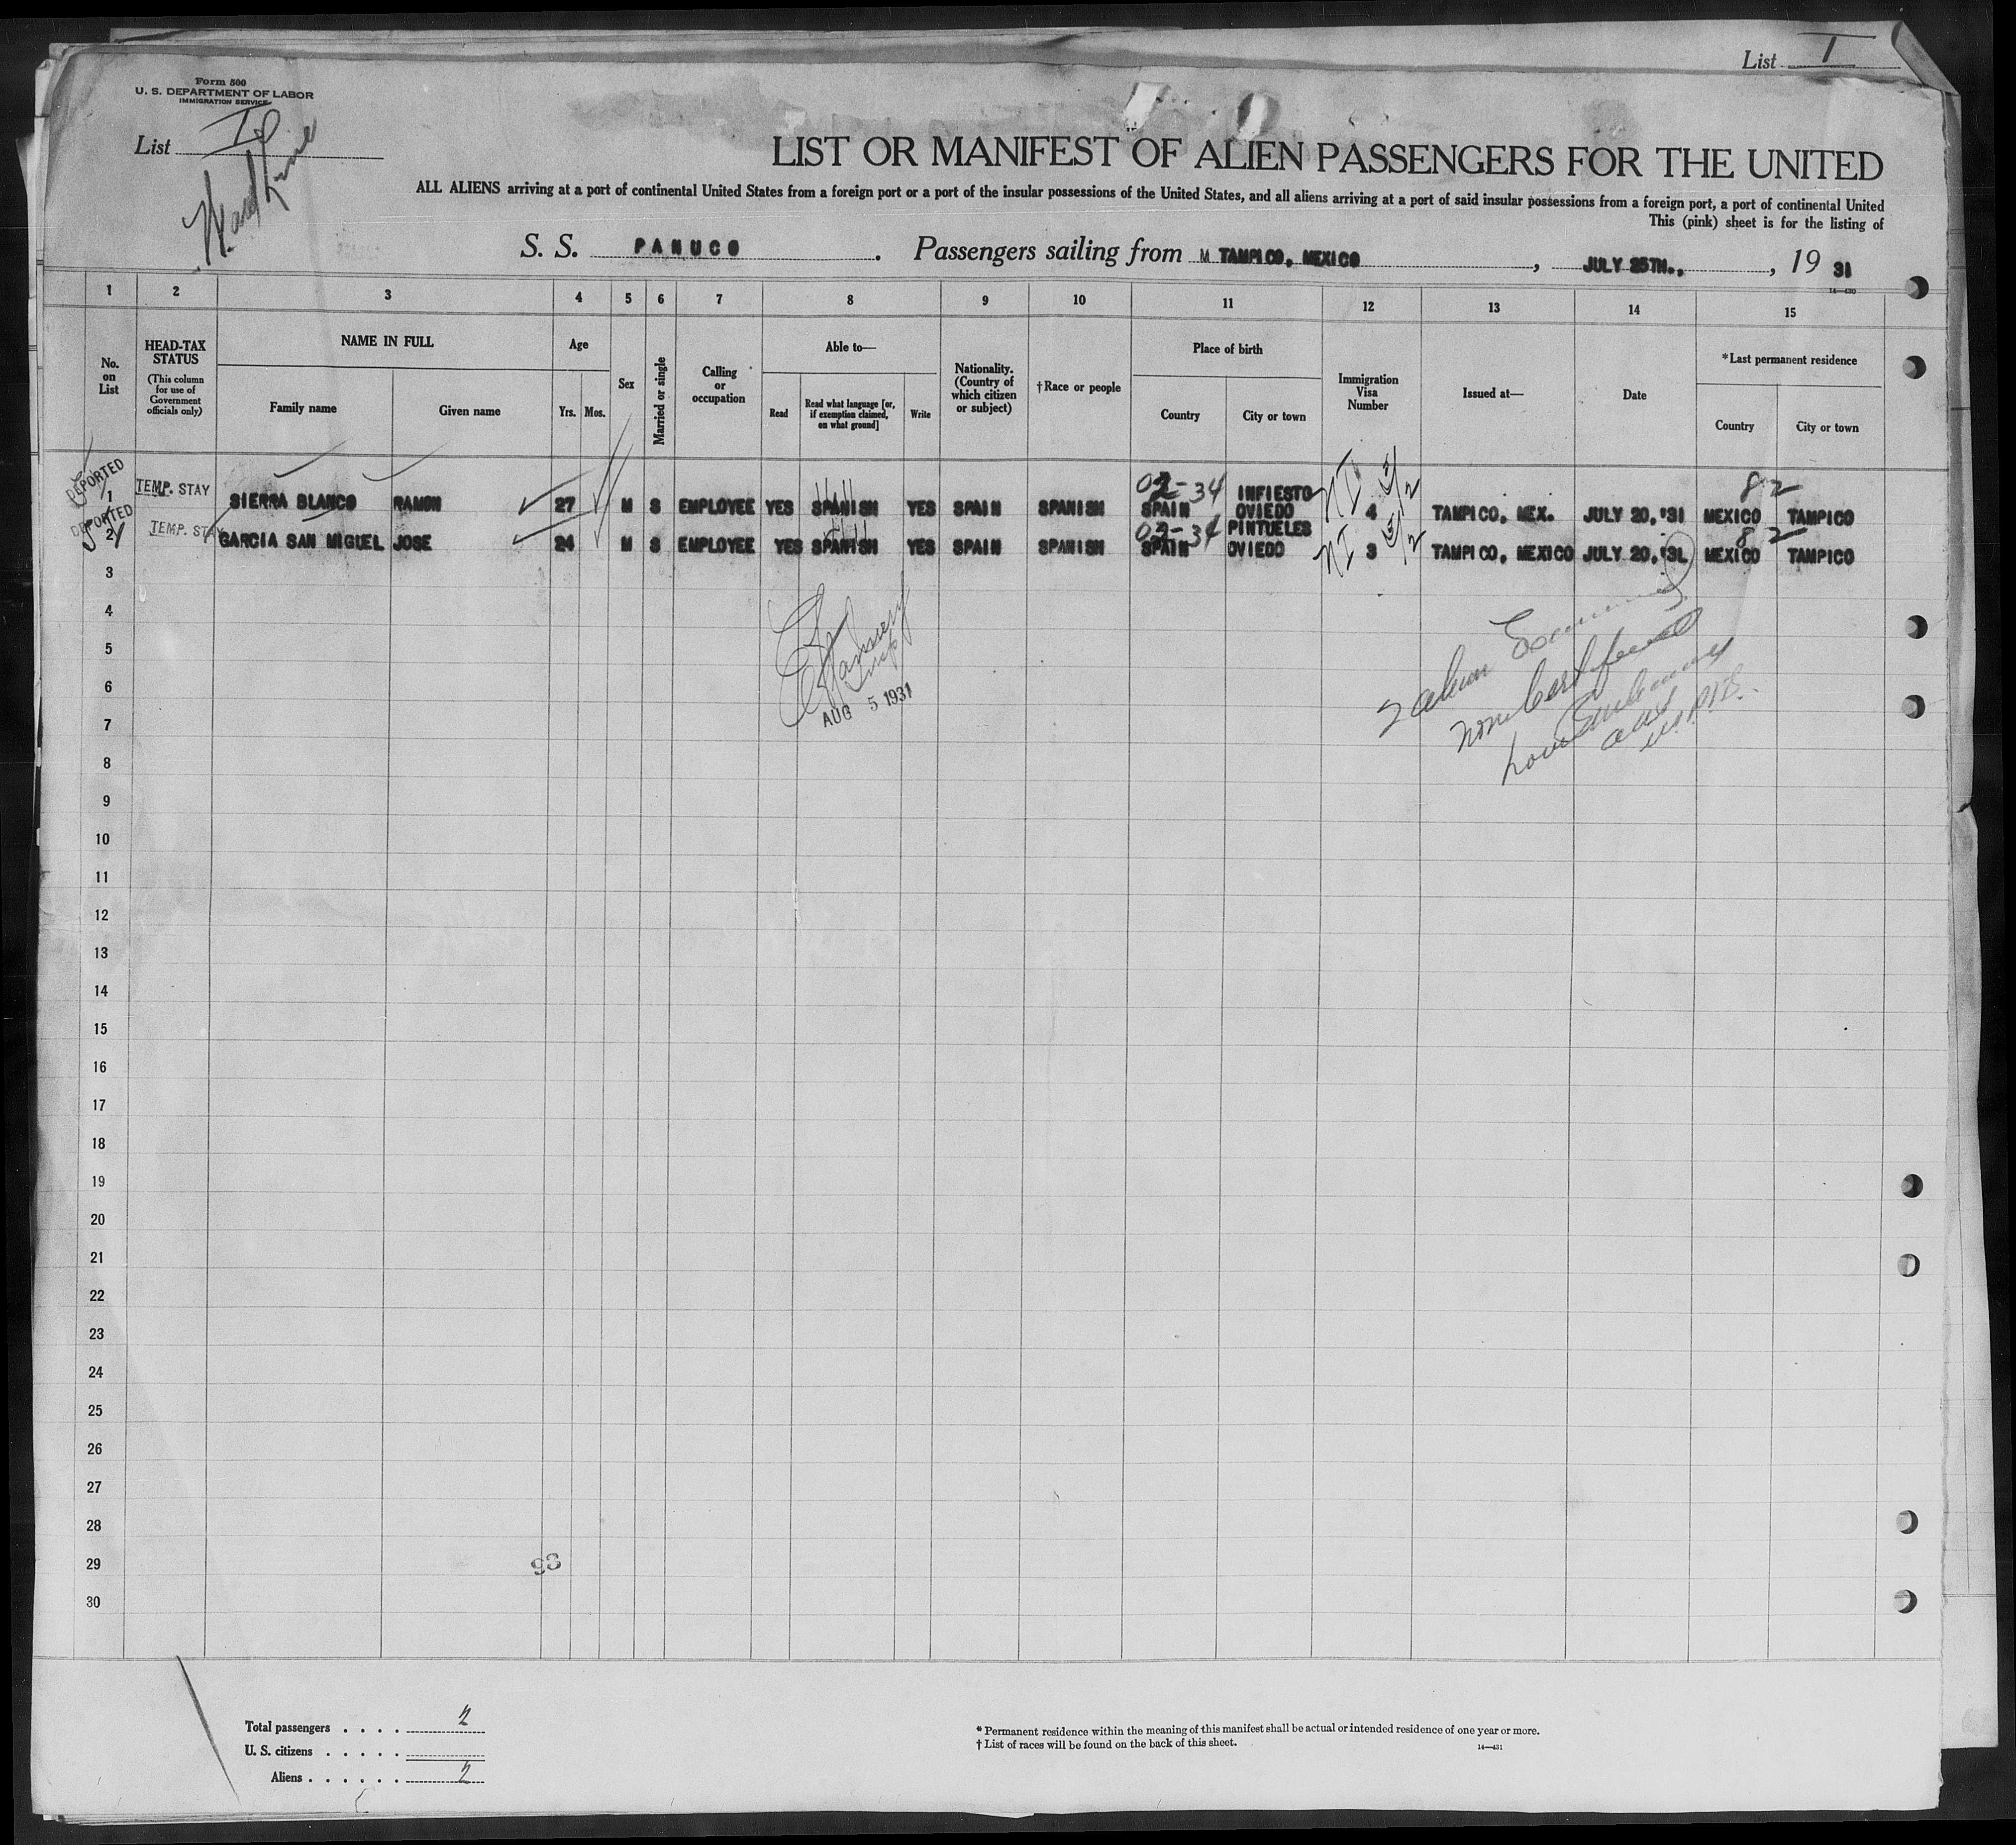 List I
Form 500
U. S. DEPARTMENT OF LABOR
IMMIGRATION SERVICE
List I
Ward Line
LIST OR MANIFEST OF ALIEN PASSENGERS FOR THE UNITED
ALL ALIENS arriving at a port of continental United States from a foreign port or a port of the insular possessions of the United States, and all aliens arriving at a port of said insular possessions from a foreign port, a port of continental United
This (pink) sheet is for the listing of
S. S. PANUCO. Passengers sailing from M TAMPICO, MEXICO, JULY 25TH., 19 31
14—430
1 2 3 4 5 6 7 8 9 10 11 12 13 14 15
No. on List
HEAD-TAX STATUS
(This column for use of Government officials only)
NAME IN FULL
Family name Given name
Age
Yrs. Mos.
Sex
Married or single
Calling or occupation
Able to—
Read
Read what language [or, if exemption claimed, on what ground]
Write
Nationality. (Country of which citizen or subject)
†Race or people
Place of birth
Country City or town
Immigration Visa Number
Issued at—
Date
*Last permanent residence
Country City or town
DEPORTED
02-34 INFIESTO NI 3/2 82
1 TEMP. STAY SIERRA BLANCO RAMON 27 M S EMPLOYEE YES SPANISH YES SPAIN SPANISH SPAIN OVIEDO 4 TAMPICO, MEX. JULY 20,'31 MEXICO TAMPICO
DEPORTED
02-34 PINTUELES NI 3/2 82
2 TEMP. STAY GARCIA SAN MIGUEL JOSE 24 M S EMPLOYEE YES SPANISH YES SPAIN SPANISH SPAIN OVIEDO 3 TAMPICO, MEXICO JULY 20,'31 MEXICO TAMPICO
3
4
5
6
AUG 5 1931
7
8
9
10
11
12
13
14
15
16
17
18
19
20
21
22
23
24
25
26
27
28
29
93
30
Total passengers . . . . 2
U. S. citizens . . . . .
Aliens . . . . . . 2
* Permanent residence within the meaning of this manifest shall be actual or intended residence of one year or more.
† List of races will be found on the back of this sheet.
14—431